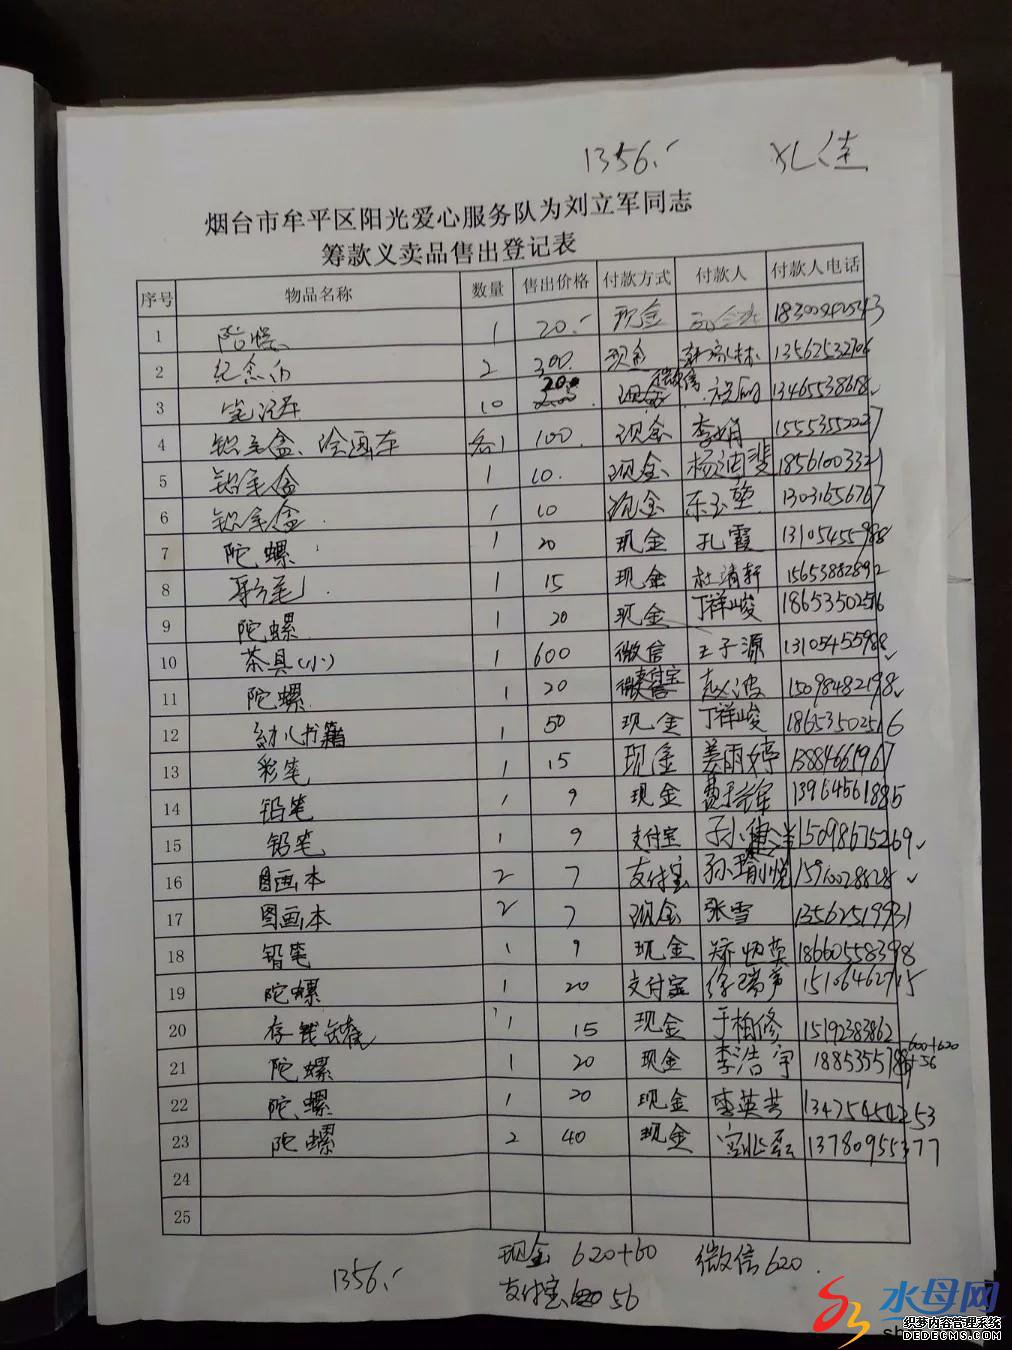 1356.
烟台市牟平区阳光爱心服务队为刘立军同志
筹款义卖品售出登记表
序号 物品名称 数量 售出价格 付款方式 付款人 付款人电话
1 陀螺 1 20. 现金
2 纪念币 2 300 现金 13562532706
3 10 200 现金 微信 13465538618
4 铅笔盒、绘画车 各1 100. 现金 李娟
5 铅笔盒 1 10. 现金
6 铅笔盒 1 10 现金 13031656767
7 陀螺 1 20 现金 孔霞 13105455988
8 1 15 现金 杜清轩 15653882892
9 陀螺 1 20 现金 丁祥峻 18653502516
10 茶具(小) 1 600 微信 王子源 13105455988
11 陀螺 1 20 支付宝 赵波 15098482198
12 幼儿书籍 1 50 现金 丁祥峻 18653502516
13 彩笔 1 15 现金 姜雨婷 13884661967
14 铅笔 1 9 现金 13964561885
15 铅笔 1 9 支付宝 15098675269
16 图画本 2 7 支付宝 孙瑜悦
17 图画本 2 7 现金 张雪 13562519931
18 铅笔 1 9 现金 18660558398
19 陀螺 1 20 支付宝 15106462715
20 存钱罐 1 15 现金 于柏修 15192383862
21 陀螺 1 20 现金 李浩宇
600+620
+56
22 陀螺 1 20 现金 李英芸 13475454253
23 陀螺 2 40 现金 13780955377
24
25
现金 620+60 微信620.
1356. 支付宝 56
水母网
织梦内容管理系统
DEDECMS.COM